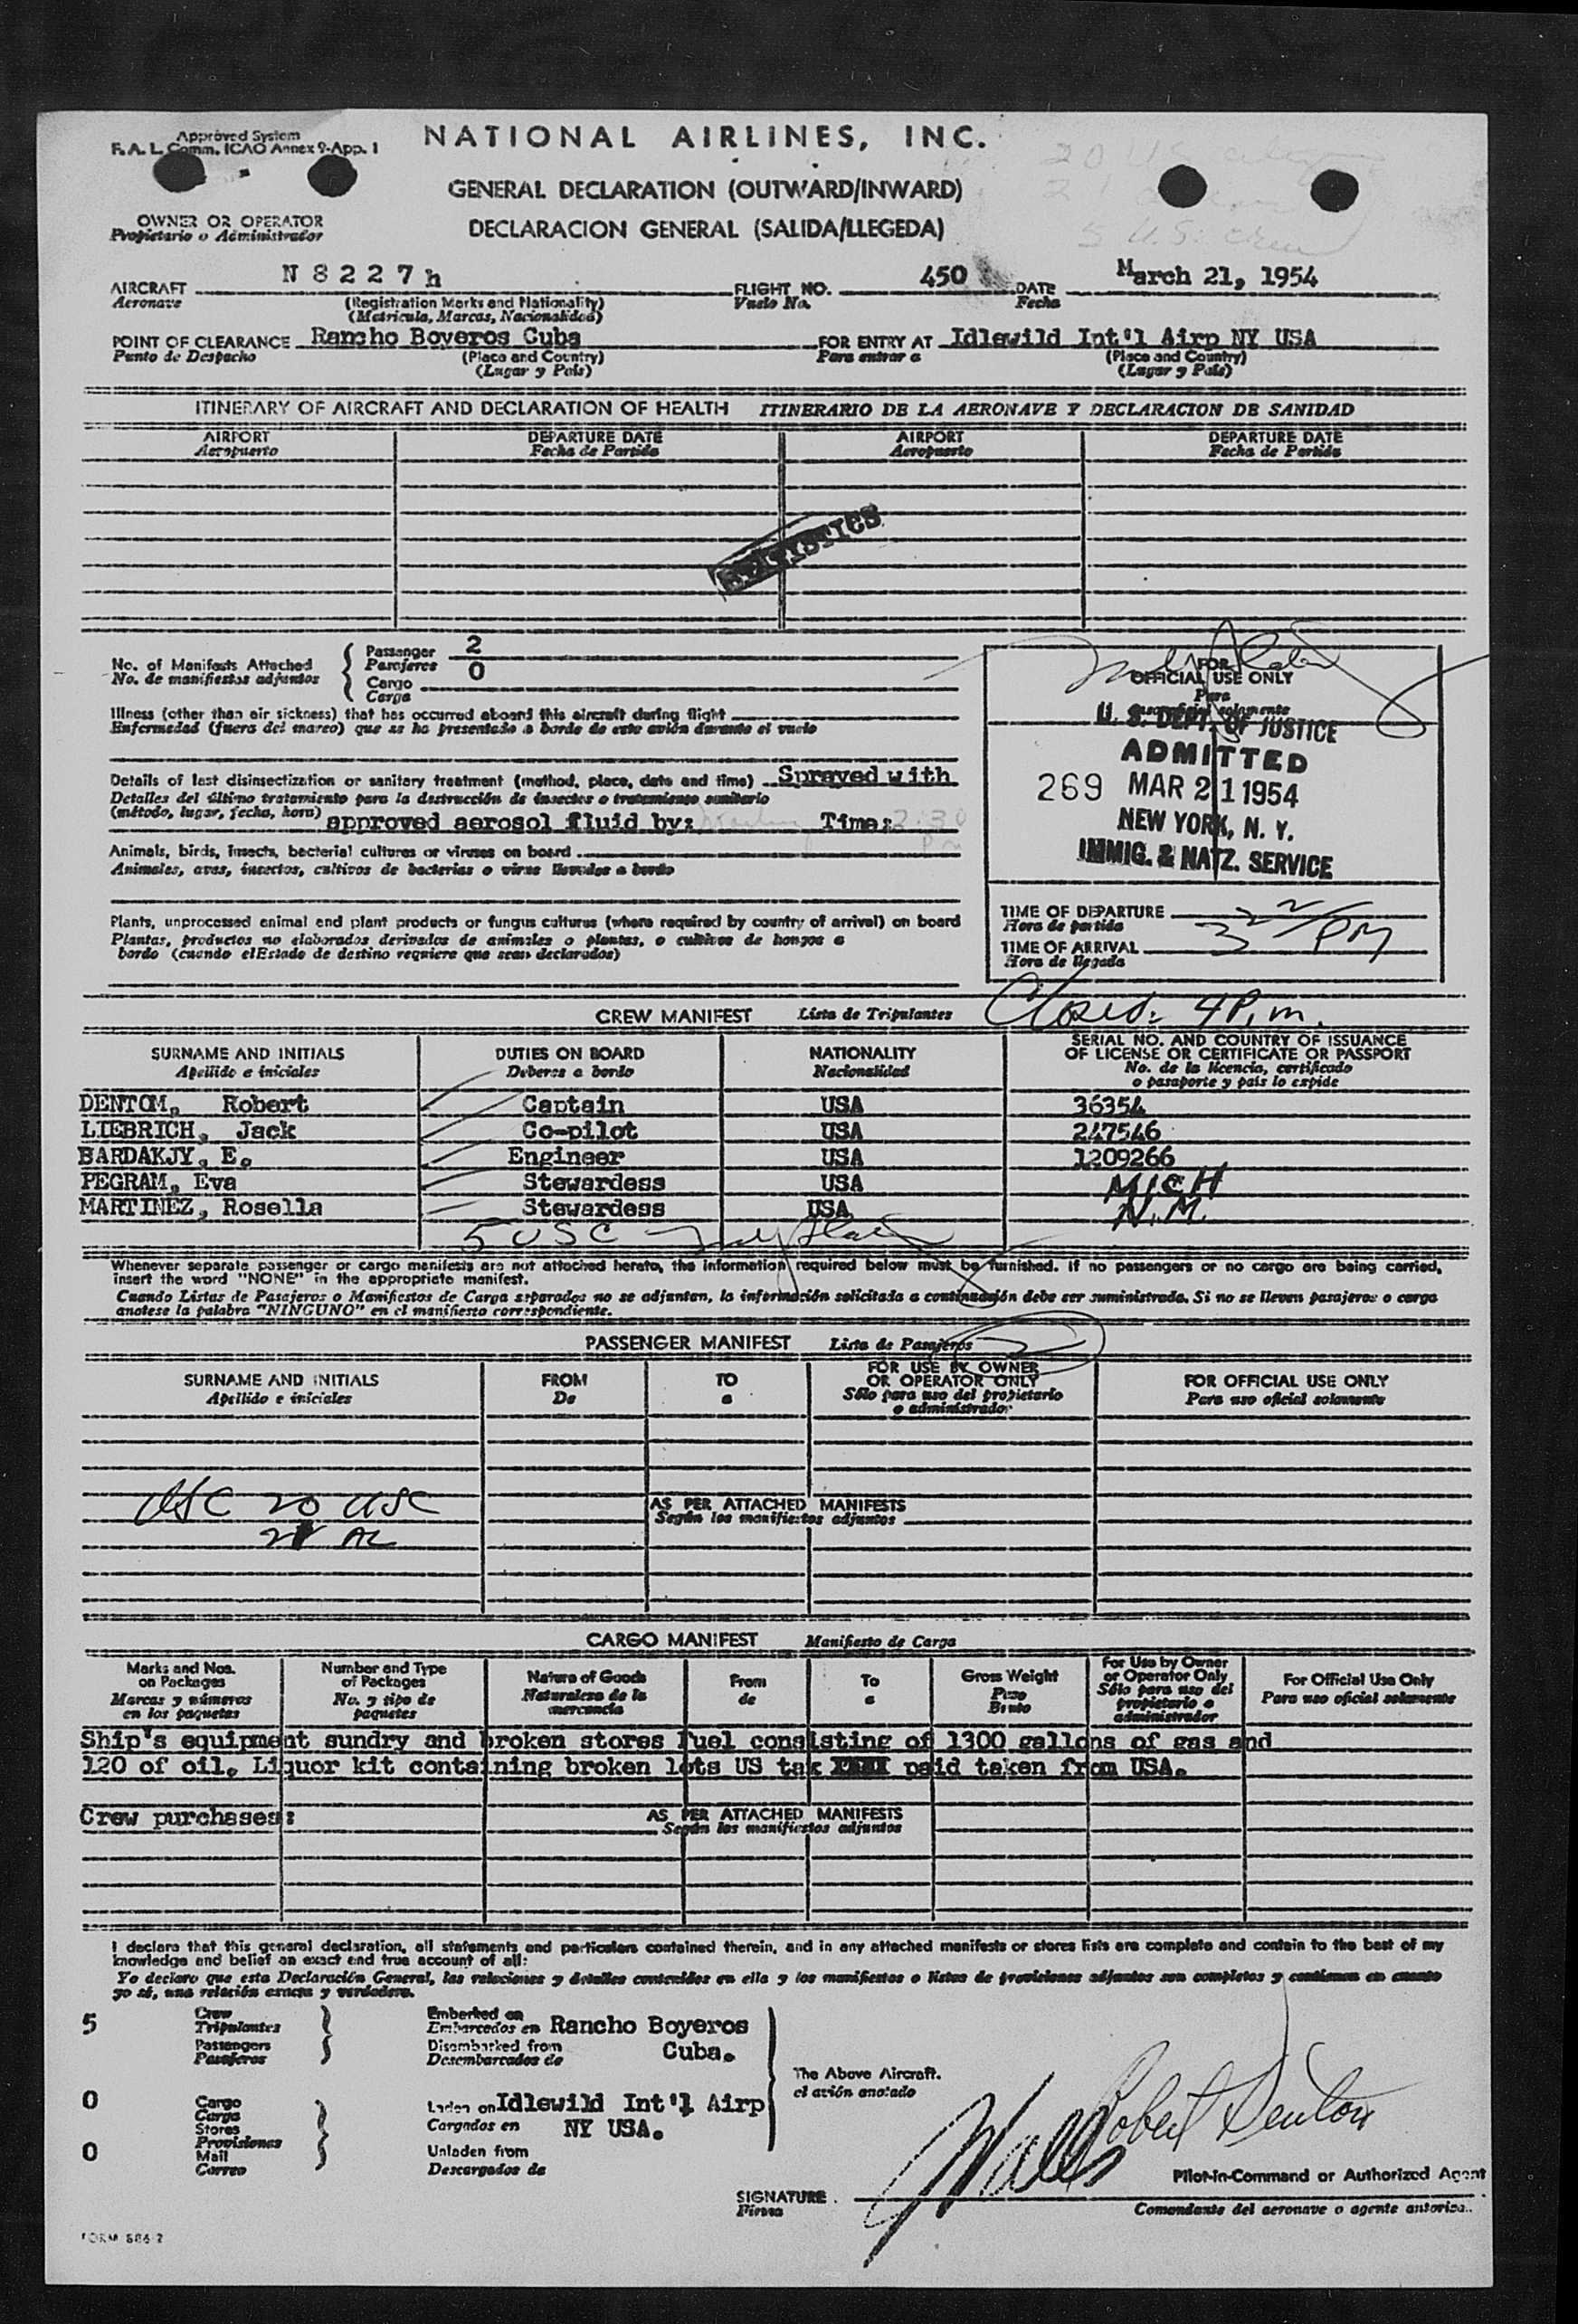 Approved System
F. A. L. Comm. ICAO Annex 9-App. 1
NATIONAL AIRLINES, INC.
GENERAL DECLARATION (OUTWARD/INWARD)
OWNER OR OPERATOR
Propietario o Administrador
DECLARACION GENERAL (SALIDA/LLEGEDA)
AIRCRAFT N 8 2 2 7 h FLIGHT NO. 450 DATE March 21, 1954
Aeronave (Registration Marks and Nationality) Vuelo No. Fecha
(Matricula, Marcas, Nacionalidad)
POINT OF CLEARANCE Rancho Boyeros Cuba FOR ENTRY AT Idlewild Int'l Airp NY USA
Punto de Despacho (Place and Country) Para entrar a (Place and Country)
(Lugar y País) (Lugar y País)
ITINERARY OF AIRCRAFT AND DECLARATION OF HEALTH ITINERARIO DE LA AERONAVE Y DECLARACION DE SANIDAD
AIRPORT DEPARTURE DATE AIRPORT DEPARTURE DATE
Aeropuerto Fecha de Partida Aeropuerto Fecha de Partida
STATISTICS
No. of Manifests Attached Passenger 2
No. de manifiestos adjuntos Pasajeros
Cargo 0
Carga
FOR
OFFICIAL USE ONLY
Para
uso oficial solamente
Illness (other than air sickness) that has occurred aboard this aircraft during flight
Enfermedad (fuera del mareo) que se ha presentado a bordo de este avión durante el vuelo
U. S. DEPT. OF JUSTICE
ADMITTED
269 MAR 21 1954
NEW YORK, N. Y.
IMMIG. & NATZ. SERVICE
Details of last disinsectization or sanitary treatment (method, place, date and time) Sprayed with
Detalles del último tratamiento para la destrucción de insectos o tratamiento sanitario
(método, lugar, fecha, hora) approved aerosol fluid by: Time: 2:30
PM
Animals, birds, insects, bacterial cultures or viruses on board
Animales, aves, insectos, cultivos de bacterias o virus llevados a bordo
Plants, unprocessed animal and plant products or fungus cultures (where required by country of arrival) on board
Plantas, productos no elaborados derivados de animales o plantas, o cultivos de hongos a
bordo (cuando el Estado de destino requiere que sean declarados)
TIME OF DEPARTURE
Hora de partida
TIME OF ARRIVAL 3 22/PM
Hora de llegada
Closed: 4 P.m.
CREW MANIFEST Lista de Tripulantes
SURNAME AND INITIALS DUTIES ON BOARD NATIONALITY SERIAL NO. AND COUNTRY OF ISSUANCE
OF LICENSE OR CERTIFICATE OR PASSPORT
Apellido e iniciales Deberes a bordo Nacionalidad No. de la licencia, certificado
o pasaporte y país lo expide
DENTOM, Robert Captain USA 36354
LIEBRICH, Jack Co-pilot USA 247546
BARDAKJY, E. Engineer USA 1209266
PEGRAM, Eva Stewardess USA MICH
MARTINEZ, Rosella Stewardess USA N.M.
5 USC
Whenever separate passenger or cargo manifests are not attached hereto, the information required below must be furnished. If no passengers or no cargo are being carried,
insert the word "NONE" in the appropriate manifest.
Cuando Listas de Pasajeros o Manifiestos de Carga separados no se adjuntan, la información solicitada a continuación debe ser suministrada. Si no se lleven pasajeros o carga
anotese la palabra "NINGUNO" en el manifiesto correspondiente.
PASSENGER MANIFEST Lista de Pasajeros
SURNAME AND INITIALS FROM TO FOR USE BY OWNER
OR OPERATOR ONLY FOR OFFICIAL USE ONLY
Apellido e iniciales De a Sólo para uso del propietario
o administrador Para uso oficial solamente
20 USC
AS PER ATTACHED MANIFESTS
Según los manifiestos adjuntos
CARGO MANIFEST Manifiesto de Carga
Marks and Nos.
on Packages
Marcas y números
en los paquetes
Number and Type
of Packages
No. y tipo de
paquetes
Nature of Goods
Naturaleza de la
mercancia
From
de
To
a
Gross Weight
Peso
Bruto
For Use by Owner
or Operator Only
Sólo para uso del
propietario o
administrador
For Official Use Only
Para uso oficial solamente
Ship's equipment sundry and broken stores Fuel consisting of 1300 gallons of gas and
120 of oil. Liquor kit containing broken lots US tax paid taken from USA.
Crew purchases:
AS PER ATTACHED MANIFESTS
Según los manifiestos adjuntos
I declare that this general declaration, all statements and particulars contained therein, and in any attached manifests or stores lists are complete and contain to the best of my
knowledge and belief an exact and true account of all:
Yo declaro que esta Declaración General, las relaciones y detalles contenidos en ella y los manifiestos o listas de provisiones adjuntos son completos y contienen en cuanto
yo sé, una relación exacta y verdadera.
5 Crew
Tripulantes
Passengers
Pasajeros
Embarked on
Embarcados en Rancho Boyeros
Disembarked from Cuba.
Desembarcados de
The Above Aircraft.
el avión anotado
0 Cargo
Carga
Stores
Provisiones
0 Mail
Correo
Laden on Idlewild Int'l Airp
Cargados en NY USA.
Unladen from
Descargados de
Robert Denton
Pilot-in-Command or Authorized Agent
SIGNATURE
Firma
Comandante del aeronave o agente autoriza..
FORM 886-2